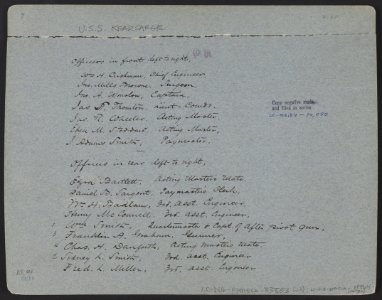 U.S.S. KEARSARGE
Officers in front left to right,
Wm H. Cushman, Chief Engineer
Jno. Mills Browne, Surgeon
Jno. A. Winslow, Captain,
Jas. S. Thornton, Lieut. Comdr.
Jas. R. Wheeler, Acting Master,
Eben M. Stoddard, Acting Master,
J. Adams Smith, Paymaster.
Officers in rear left to right,
Ezra Bartlett, Acting Masters Mate.
Daniel B. Sargent, Paymasters Clerk.
Wm. H. Badlam, 2nd, Asst. Engineer.
Henry McConnell, 3rd. Asst. Engineer.
Wm. Smith, Quartermaster & Capt. of After pivot gun.
Franklin A. Graham, Gunner,
Chas. H. Danforth, Acting Masters Mate
Sidney L. Smith, 3rd. Asst. Engineer.
Fred. L. Miller, 3rd. Asst. Engineer
Copy negative made